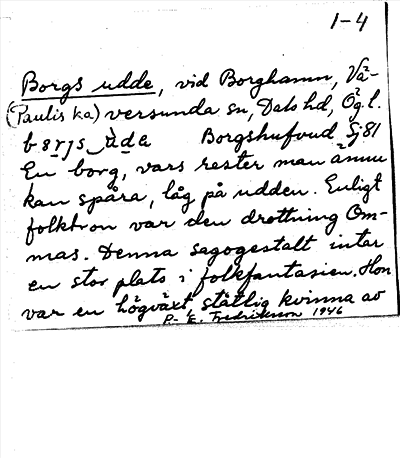 1-4
Borgs udde, vid Borghamn, Vä-
(Paulis ka) versunda sn, Dals hd, Ög. l.
Borgshufvud Sj 81
En borg, vars rester man ännu
kan spåra, låg på udden. Enligt
folktron var den drottning Om-
mas. Denna sagogestalt intar
en stor plats i folkfantasien. Hon
var en högväxt, ståtlig kvinna av
R. E. Fredriksson 1946